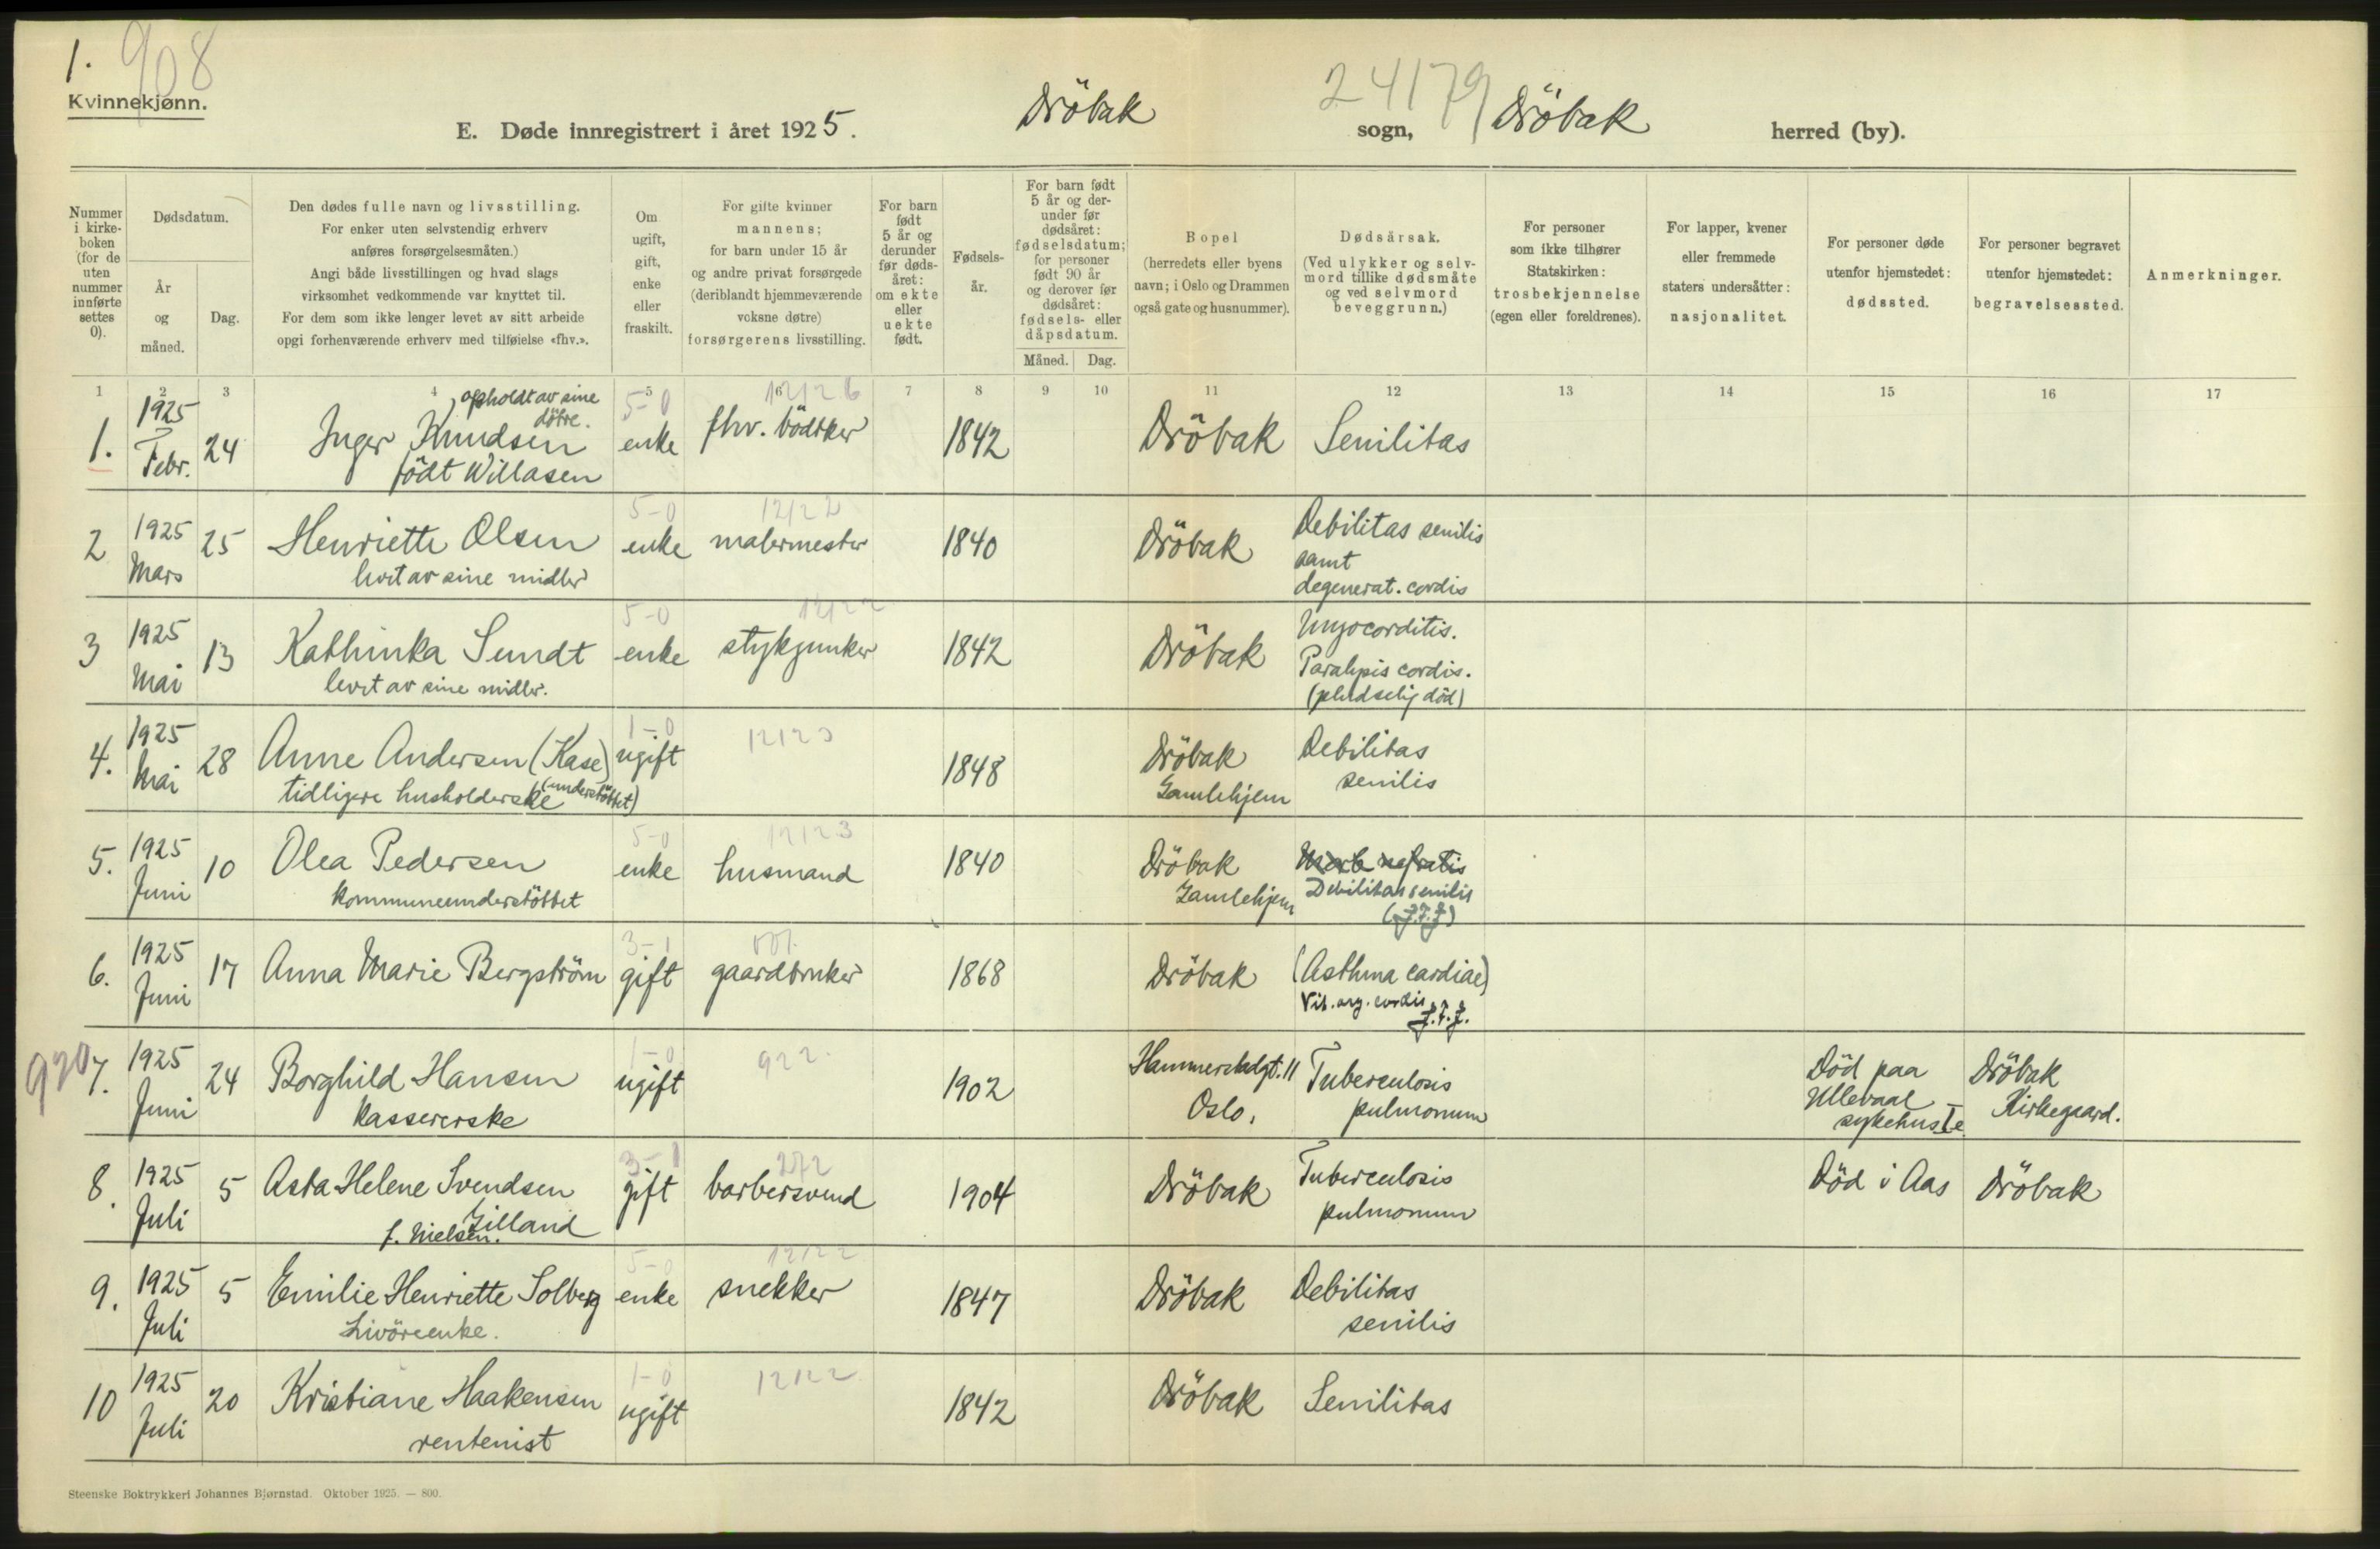 1. 908
Kvinnekjønn.
E. Døde innregistrert i året 1925. Dröbak sogn, 24179 Dröbak herred (by).
Nummer i kirke-boken (for de uten nummer innførte settes 0).
Dødsdatum.
År og måned.
Dag.
Den dødes fulle navn og livsstilling.
For enker uten selvstendig erhverv
anføres forsørgelsesmåten.)
Angi både livsstillingen og hvad slags
virksomhet vedkommende var knyttet til.
For dem som ikke lenger levet av sitt arbeide
opgi forhenværende erhverv med tilføielse «fhv.».
Om ugift, gift, enke eller fraskilt.
For gifte kvinner
mannens;
for barn under 15 år
og andre privat forsørgede
(deriblandt hjemmeværende
voksne døtre)
forsørgerens livsstilling.
For barn født 5 år og derunder før døds-året: om ekte eller uekte født.
Fødsels-år.
For barn født 5 år og der-under før dødsåret: fødselsdatum; for personer født 90 år og derover før dødsåret: fødsels- eller dåpsdatum.
Måned. Dag.
Bopel
(herredets eller byens
navn; i Oslo og Drammen
også gate og husnummer).
Dødsårsak.
(Ved ulykker og selv-
mord tillike dødsmåte
og ved selvmord
beveggrunn.)
For personer
som ikke tilhører
Statskirken:
trosbekjennelse
(egen eller foreldrenes).
For lapper, kvener
eller fremmede
staters undersåtter:
nasjonalitet.
For personer døde
utenfor hjemstedet:
dødssted.
For personer begravet
utenfor hjemstedet:
begravelsessted.
Anmerkninger.
1 2 3 4 5 6 7 8 9 10 11 12 13 14 15 16 17
1. 1925 Febr. 24 Inger Knudsen opholdt av sine døtre. födt Willasen 5-0 enke 12126 fhv. bödtker 1842 Dröbak Senilitas
2 1925 Mars 25 Henriette Olsen levet av sine midler 5-0 enke 12122 malermester 1840 Dröbak Debilitas senilis samt degenerat. cordis
3 1925 Mai 13 Kathinka Sundt levet av sine midler. 5-0 enke 12122 stykjunker 1842 Dröbak Myocorditis. Paralysis cordis. (pludselig död)
4. 1925 Mai 28 Anne Andersen (Kase) tidligere husholderske (understöttet) 1-0 ugift 12123 1848 Dröbak Gamlehjem Debilitas senilis
5. 1925 Juni 10 Olea Pedersen kommuneunderstöttet 5-0 enke 12123 husmand 1840 Dröbak Gamlehjem Debilitas senilis (J.F.J)
6. 1925 Juni 17 Anna Marie Bergström 3-1 gift gaardbruker 1868 Dröbak (Asthma cardiae) Vit. org. cordis J.F.J.
920 7. 1925 Juni 24 Borghild Hansen kassererske 1-0 ugift 922. 1902 Hammerstadgt. 11 Oslo. Tuberculosis pulmonum Död paa Ullevaal sykehus Dröbak Kirkegaard.
8. 1925 Juli 5 Asta Helene Svendsen Gilland f. Nielsen. 3-1 gift 272 barbersvend 1904 Dröbak Tuberculosis pulmonum Död i Aas Dröbak
9. 1925 Juli 5 Emilie Henriette Solberg Livöreenke. 5-0 enke 12122 snekker 1847 Dröbak Debilitas senilis
10 1925 Juli 20 Kristiane Haakensen rentenist 1-0 ugift 12122 1842 Dröbak Senilitas
Steenske Boktrykkeri Johannes Bjørnstad. Oktober 1925. — 800.